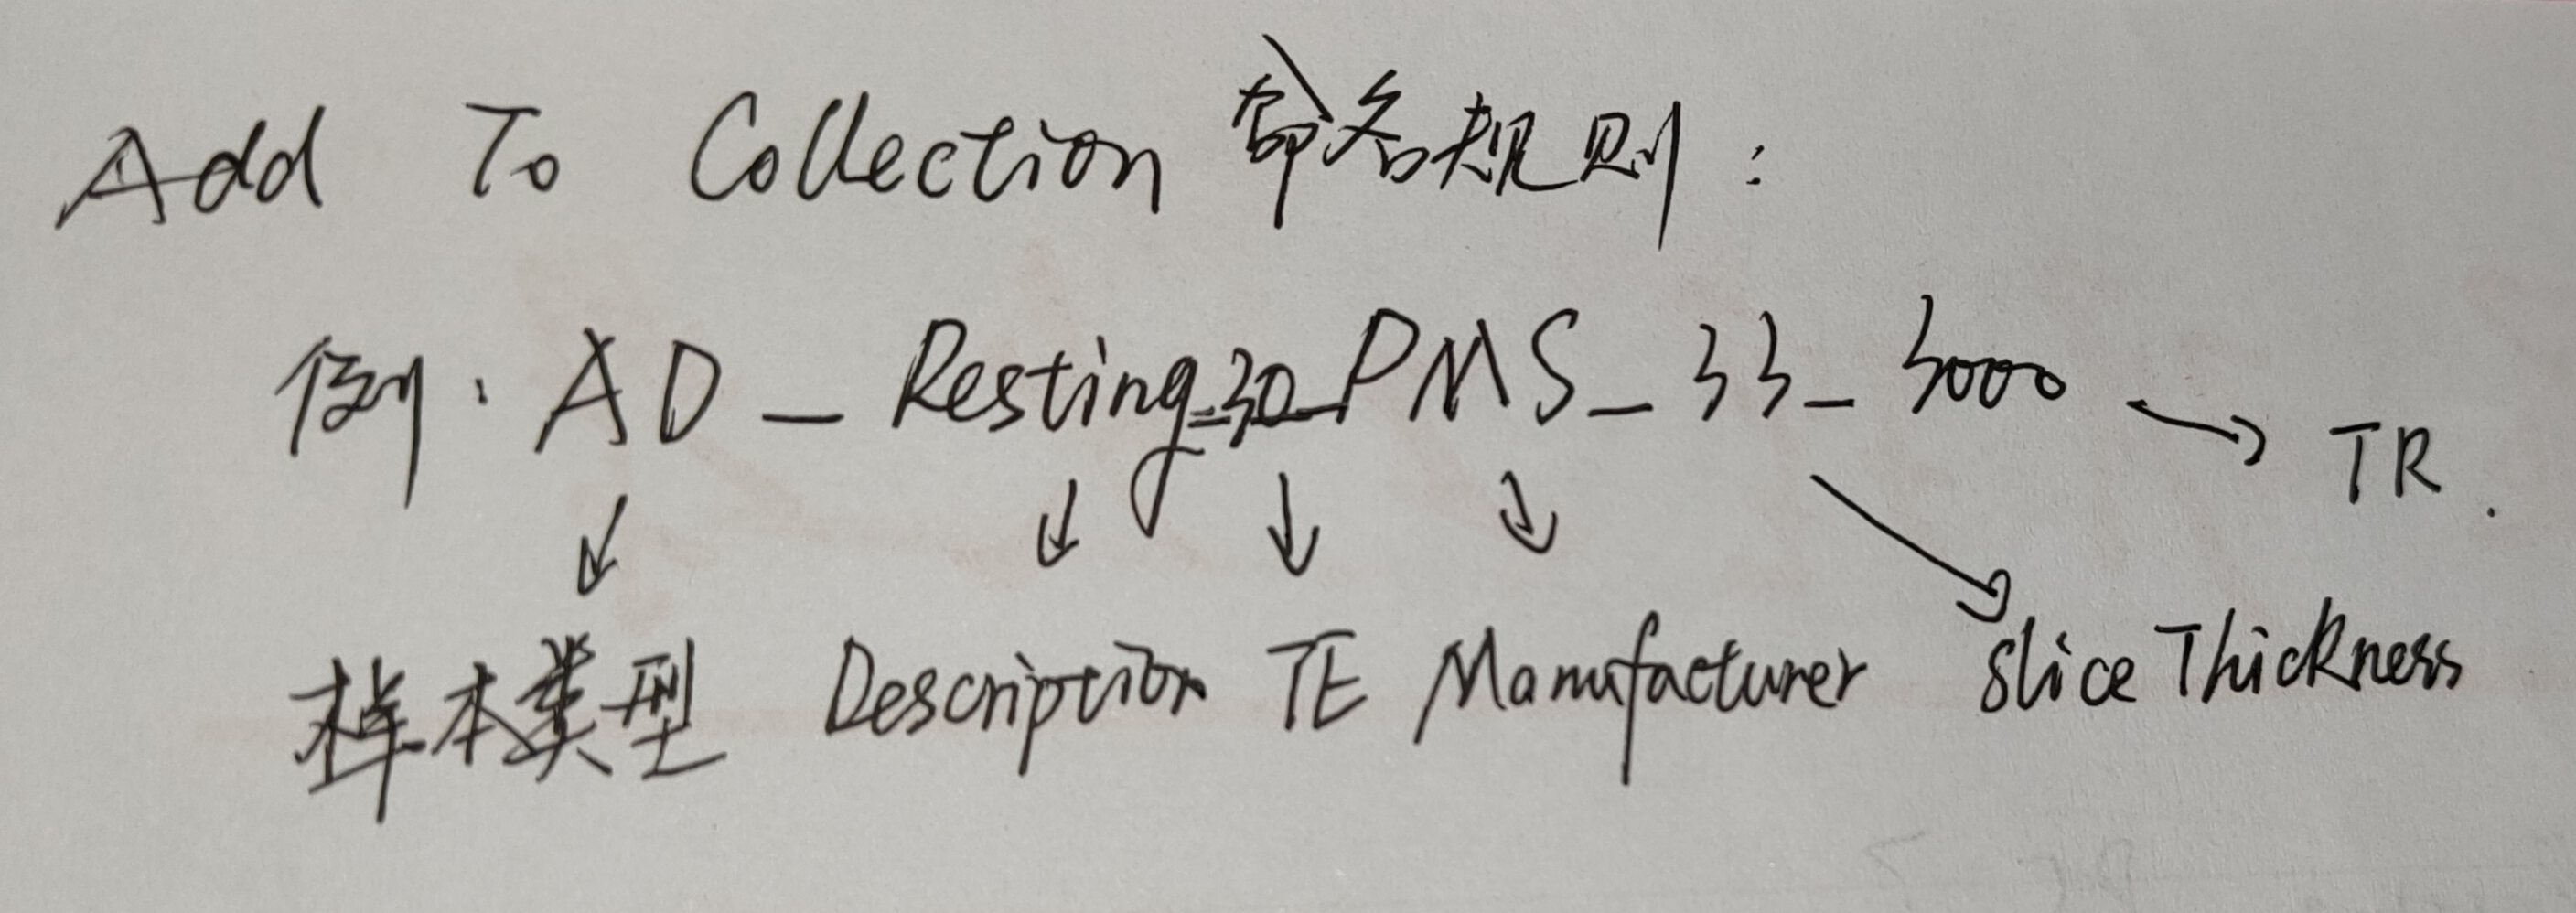 Add To Collection 命名规则：
例：AD_Resting_30_PMS_33_3000 → TR.
样本类型 Description TE Manufacturer Slice Thickness